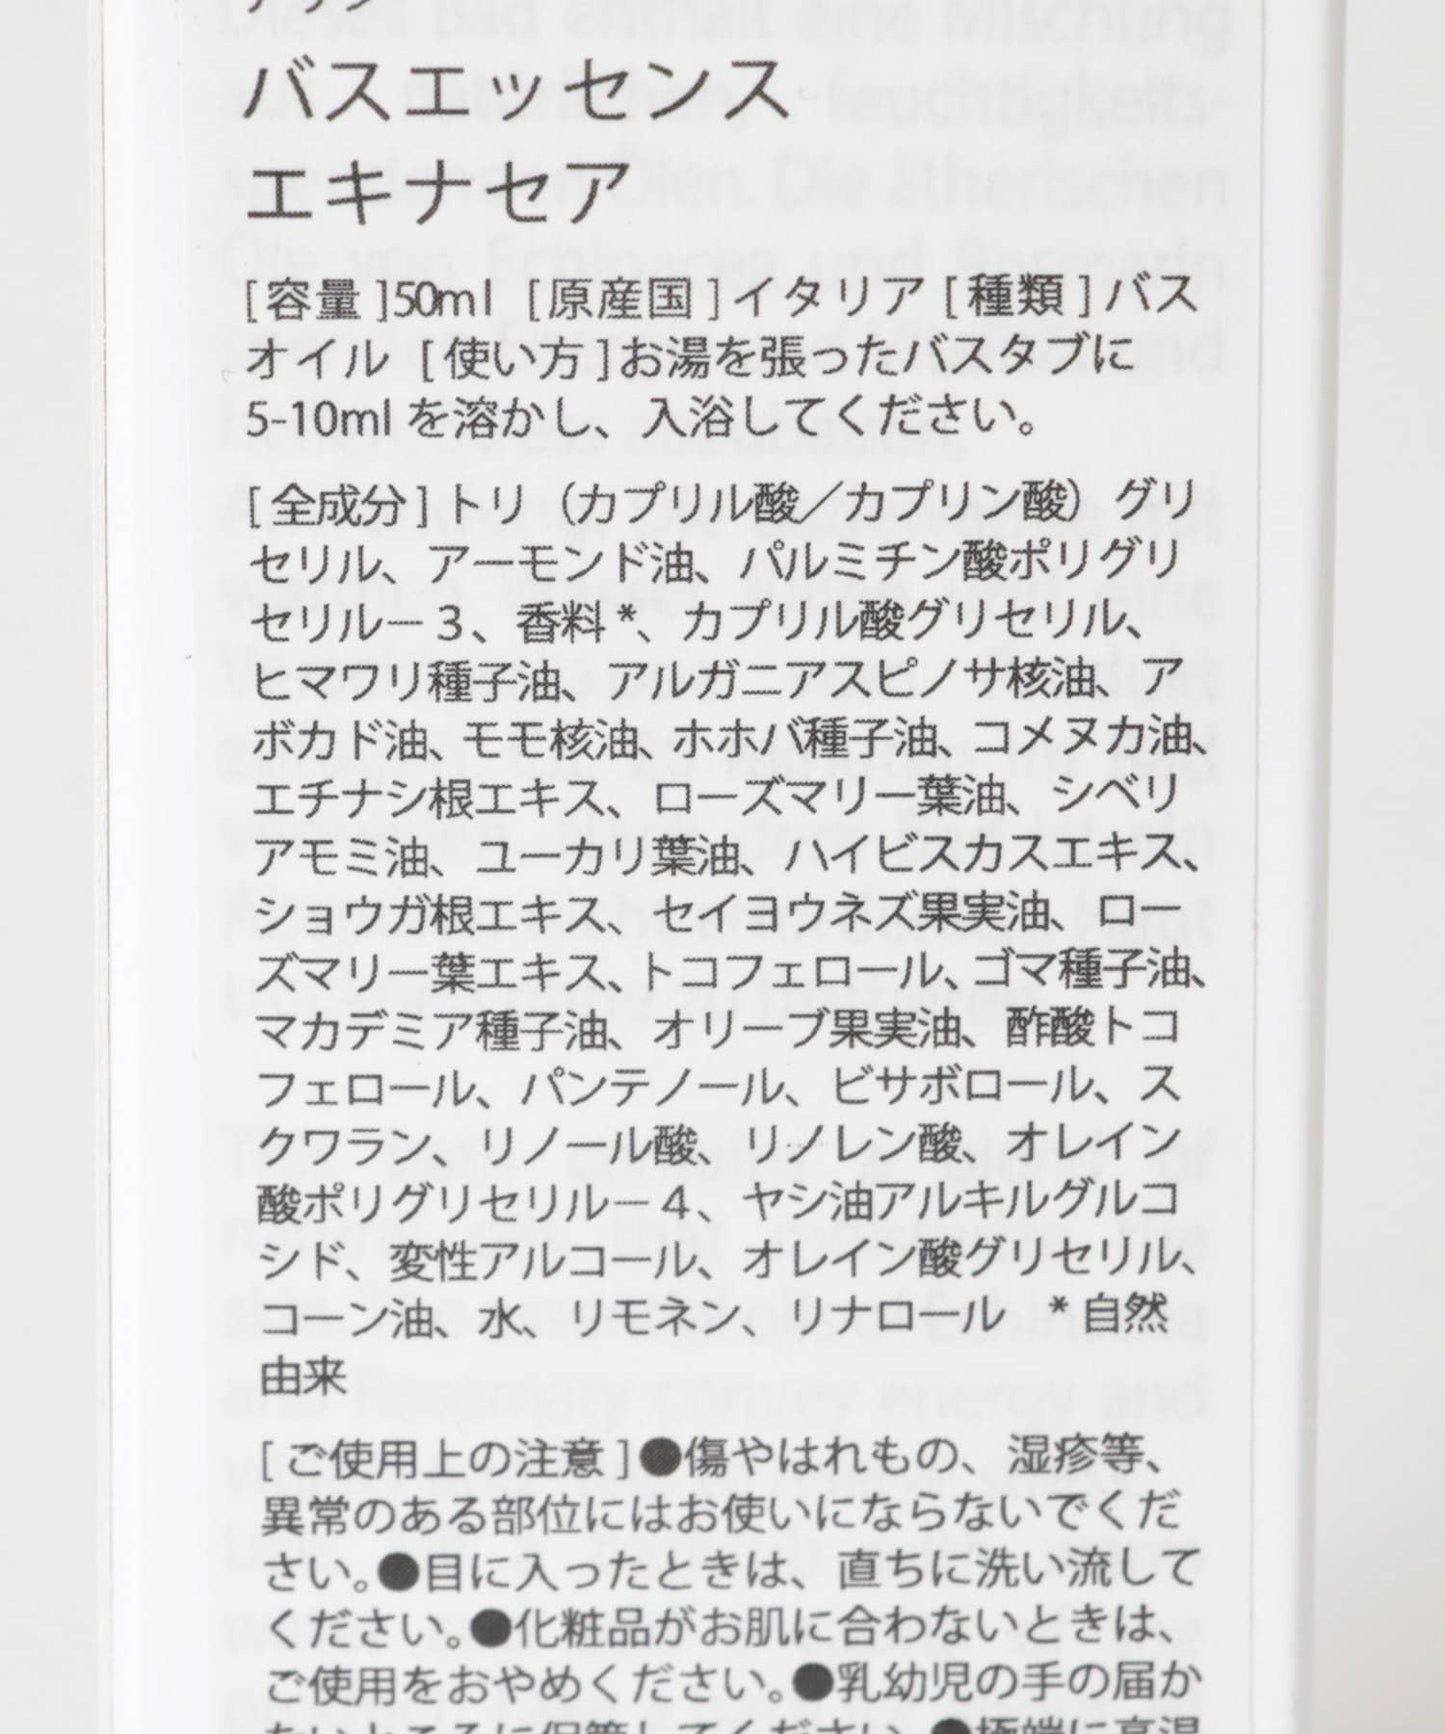 バスエッセンス
エキナセア
[ 容量 ]50ml [ 原産国 ] イタリア [ 種類 ] バス
オイル [ 使い方 ]お湯を張ったバスタブに
5-10ml を溶かし、入浴してください。
[ 全成分 ] トリ（カプリル酸／カプリン酸）グリ
セリル、アーモンド油、パルミチン酸ポリグリ
セリルー３、香料 *、カプリル酸グリセリル、
ヒマワリ種子油、アルガニアスピノサ核油、ア
ボカド油、モモ核油、ホホバ種子油、コメヌカ油、
エチナシ根エキス、ローズマリー葉油、シベリ
アモミ油、ユーカリ葉油、ハイビスカスエキス、
ショウガ根エキス、セイヨウネズ果実油、ロー
ズマリー葉エキス、トコフェロール、ゴマ種子油、
マカデミア種子油、オリーブ果実油、酢酸トコ
フェロール、パンテノール、ビサボロール、ス
クワラン、リノール酸、リノレン酸、オレイン
酸ポリグリセリルー４、ヤシ油アルキルグルコ
シド、変性アルコール、オレイン酸グリセリル、
コーン油、水、リモネン、リナロール　* 自然
由来
[ ご使用上の注意 ] ●傷やはれもの、湿疹等、
異常のある部位にはお使いにならないでくだ
さい。●目に入ったときは、直ちに洗い流して
ください。●化粧品がお肌に合わないときは、
ご使用をおやめください。●乳幼児の手の届か
ないところに保管してください。●極端に高温